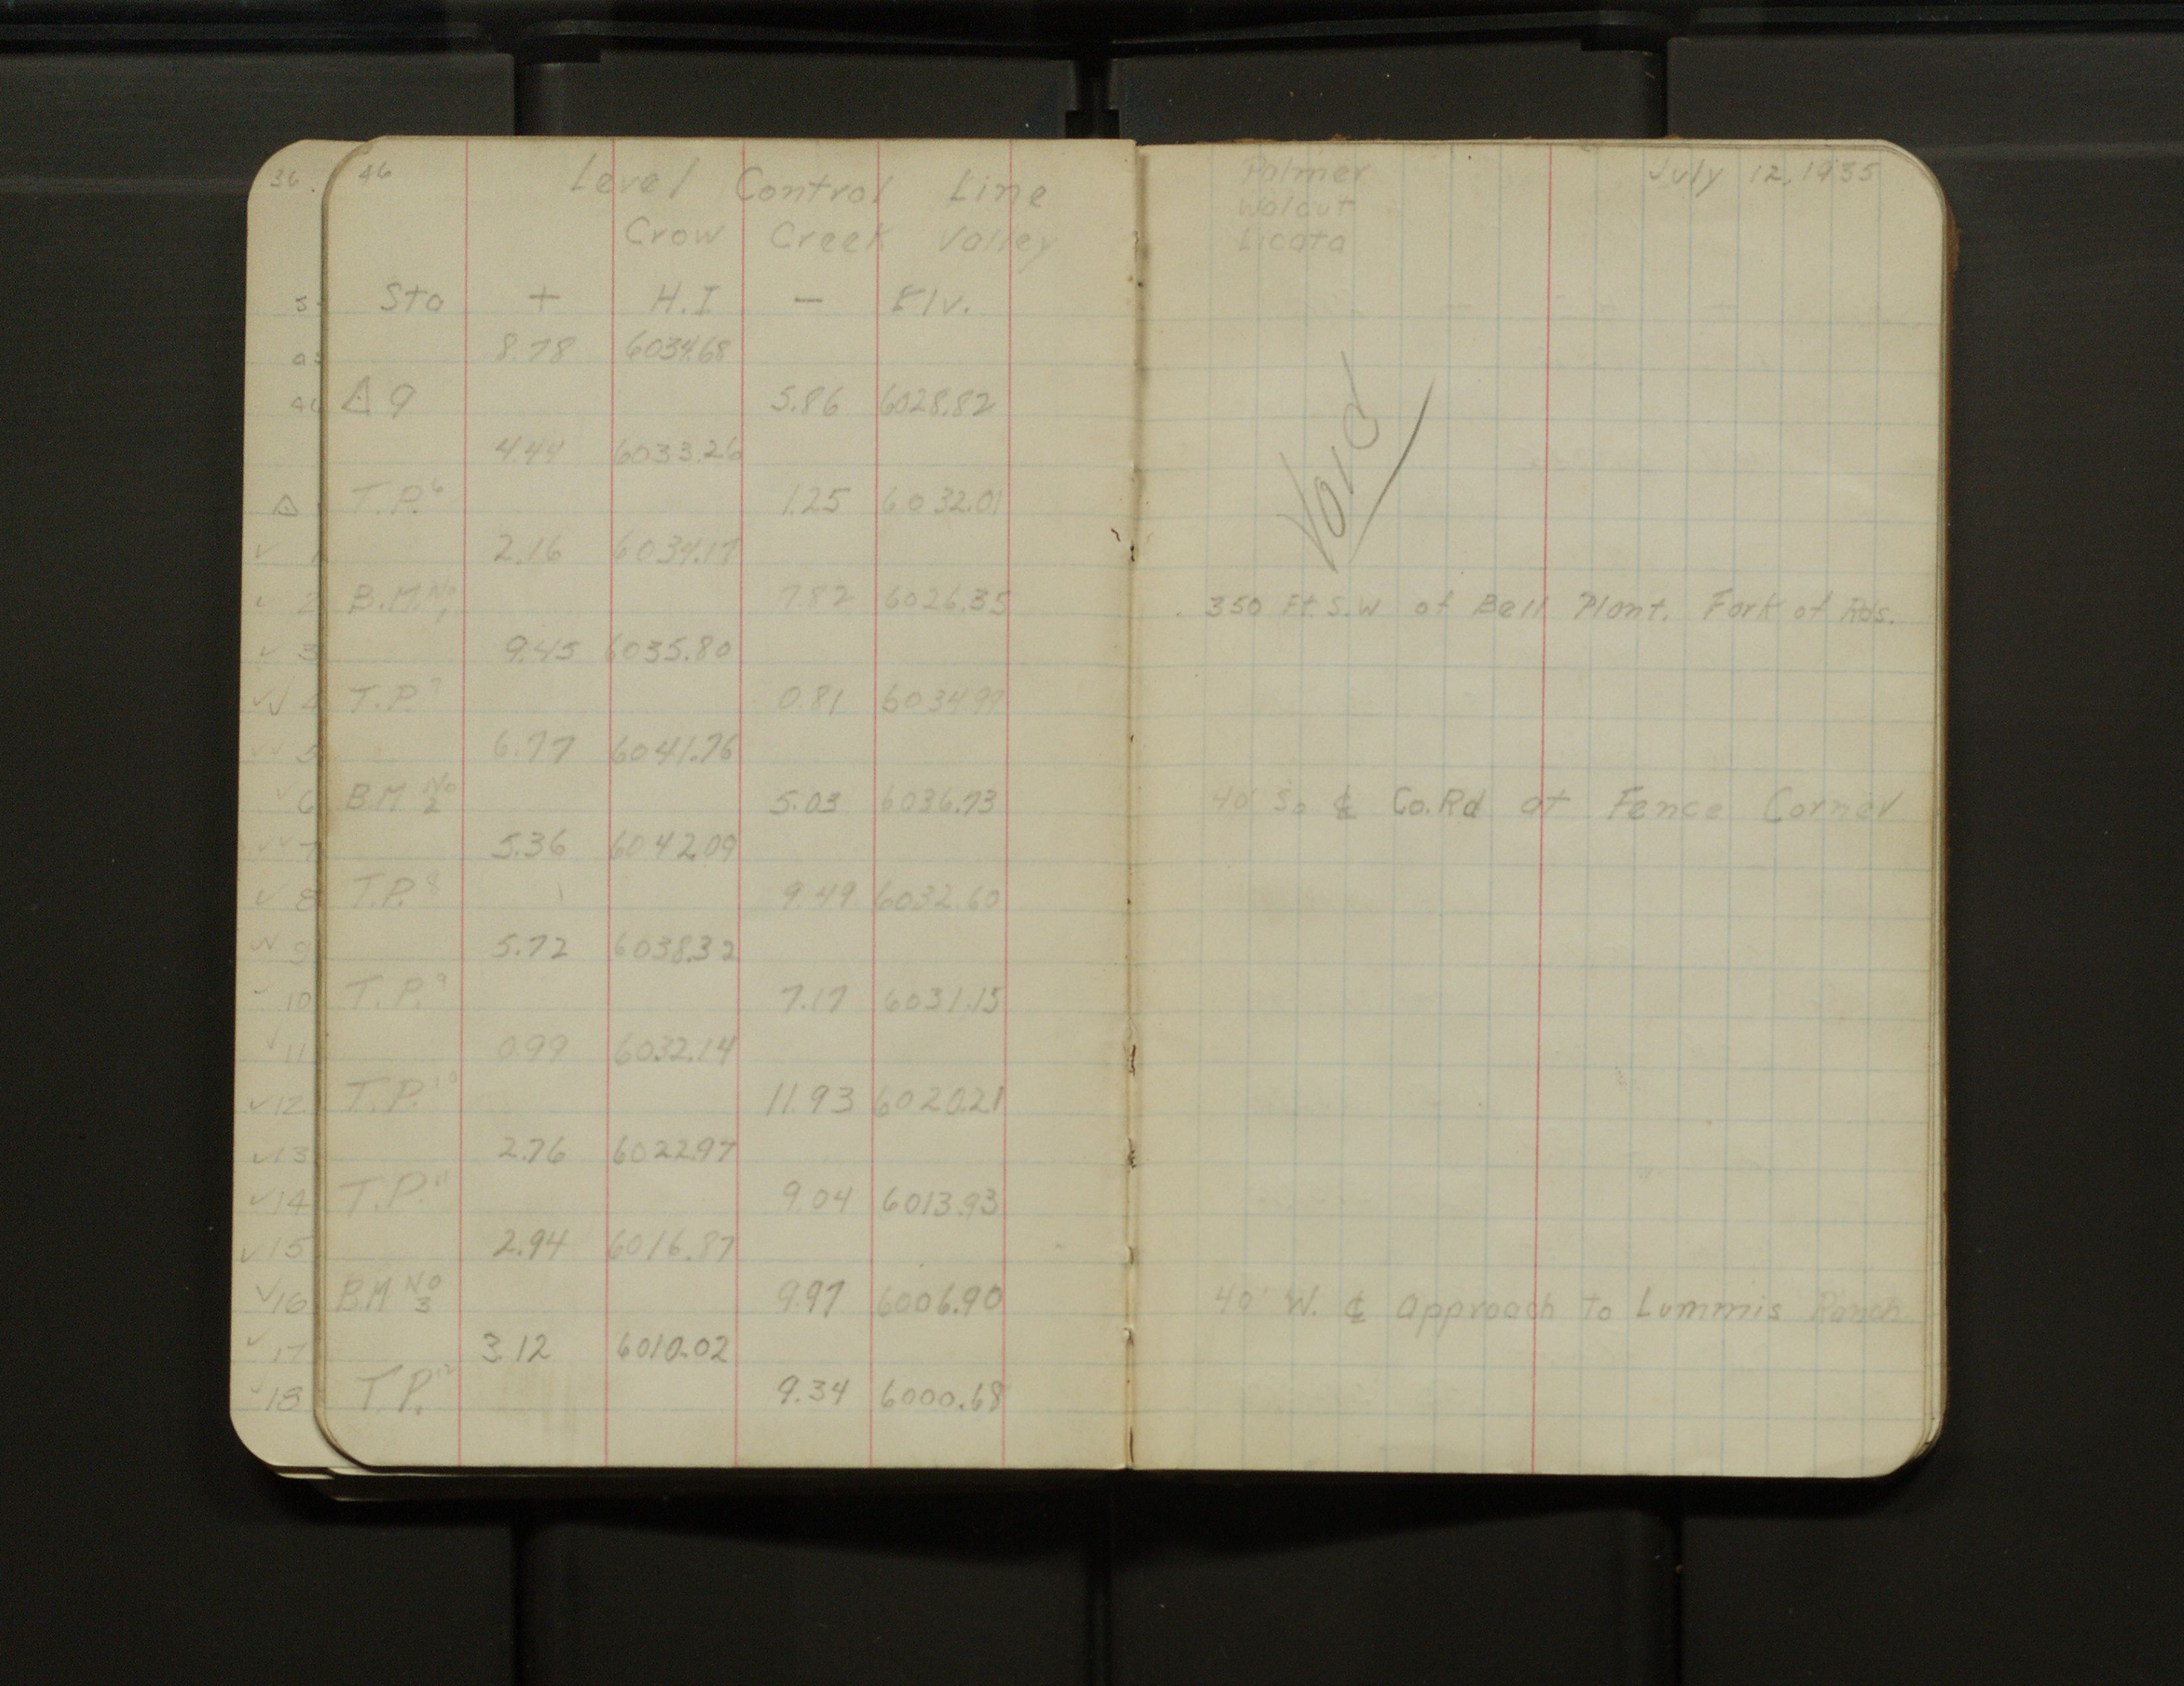 36.
46
Level Control Line
Crow Creek Valley
Sta + H.I - Elv.
8.78 6034.68
△ 9 5.86 6028.82
4.44 6033.26
T.P. 6 1.25 6032.01
2.16 6034.17
B.M. No 1 7.82 6026.35
9.45 6035.80
T.P. 7 0.81 6034.99
6.77 6041.76
B.M No 2 5.03 6036.73
5.36 6042.09
T.P. 8 9.49 6032.60
5.72 6038.32
T.P. 9 7.17 6031.15
0.99 6032.14
T.P. 10 11.93 6020.21
2.76 6022.97
T.P. 11 9.04 6013.93
2.94 6016.87
B.M No 3 9.97 6006.90
3.12 6010.02
T.P. 12 9.34 6000.68
✓ 1
✓ 2
✓ 3
✓✓ 4
✓✓ 5
✓ 6
✓✓ 7
✓ 8
✓✓ 9
✓ 10
✓ 11
✓ 12
✓ 13
✓ 14
✓ 15
✓ 16
✓ 17
✓ 18
Palmer
Walcut
Licata
July 12, 1935
Void
350 Ft. S.W of Bell Plant. Fork of Rds.
40' So ℄ Co.Rd at Fence Corner
40' W. ℄ Approach to Lummis Ranch.